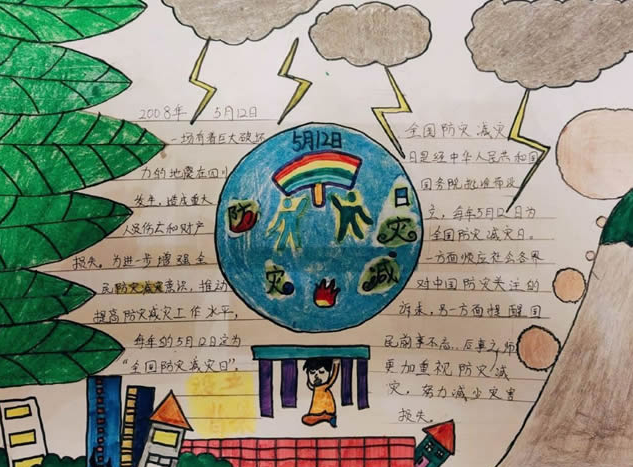 2008年 5月12日
一场有着巨大破坏
力的地震在四川
发生，造成重大
人员伤亡和财产
损失。为进一步增强全
民防灾减灾意识，推动
提高防灾减灾工作水平，
每年的5月12定为
“全国防灾减灾日”。
5月12日
防
灾
减
灾
日
全国防灾减灾
日是经中华人民共和国
国务院批准而设
立，每年5月12日为
全国防灾减灾日。
一方面顺应社会各界
对中国防灾关注的
诉求，另一方面提醒国
民前事不忘..后事之师
更加重视防灾减
灾，努力减少灾害
损失。